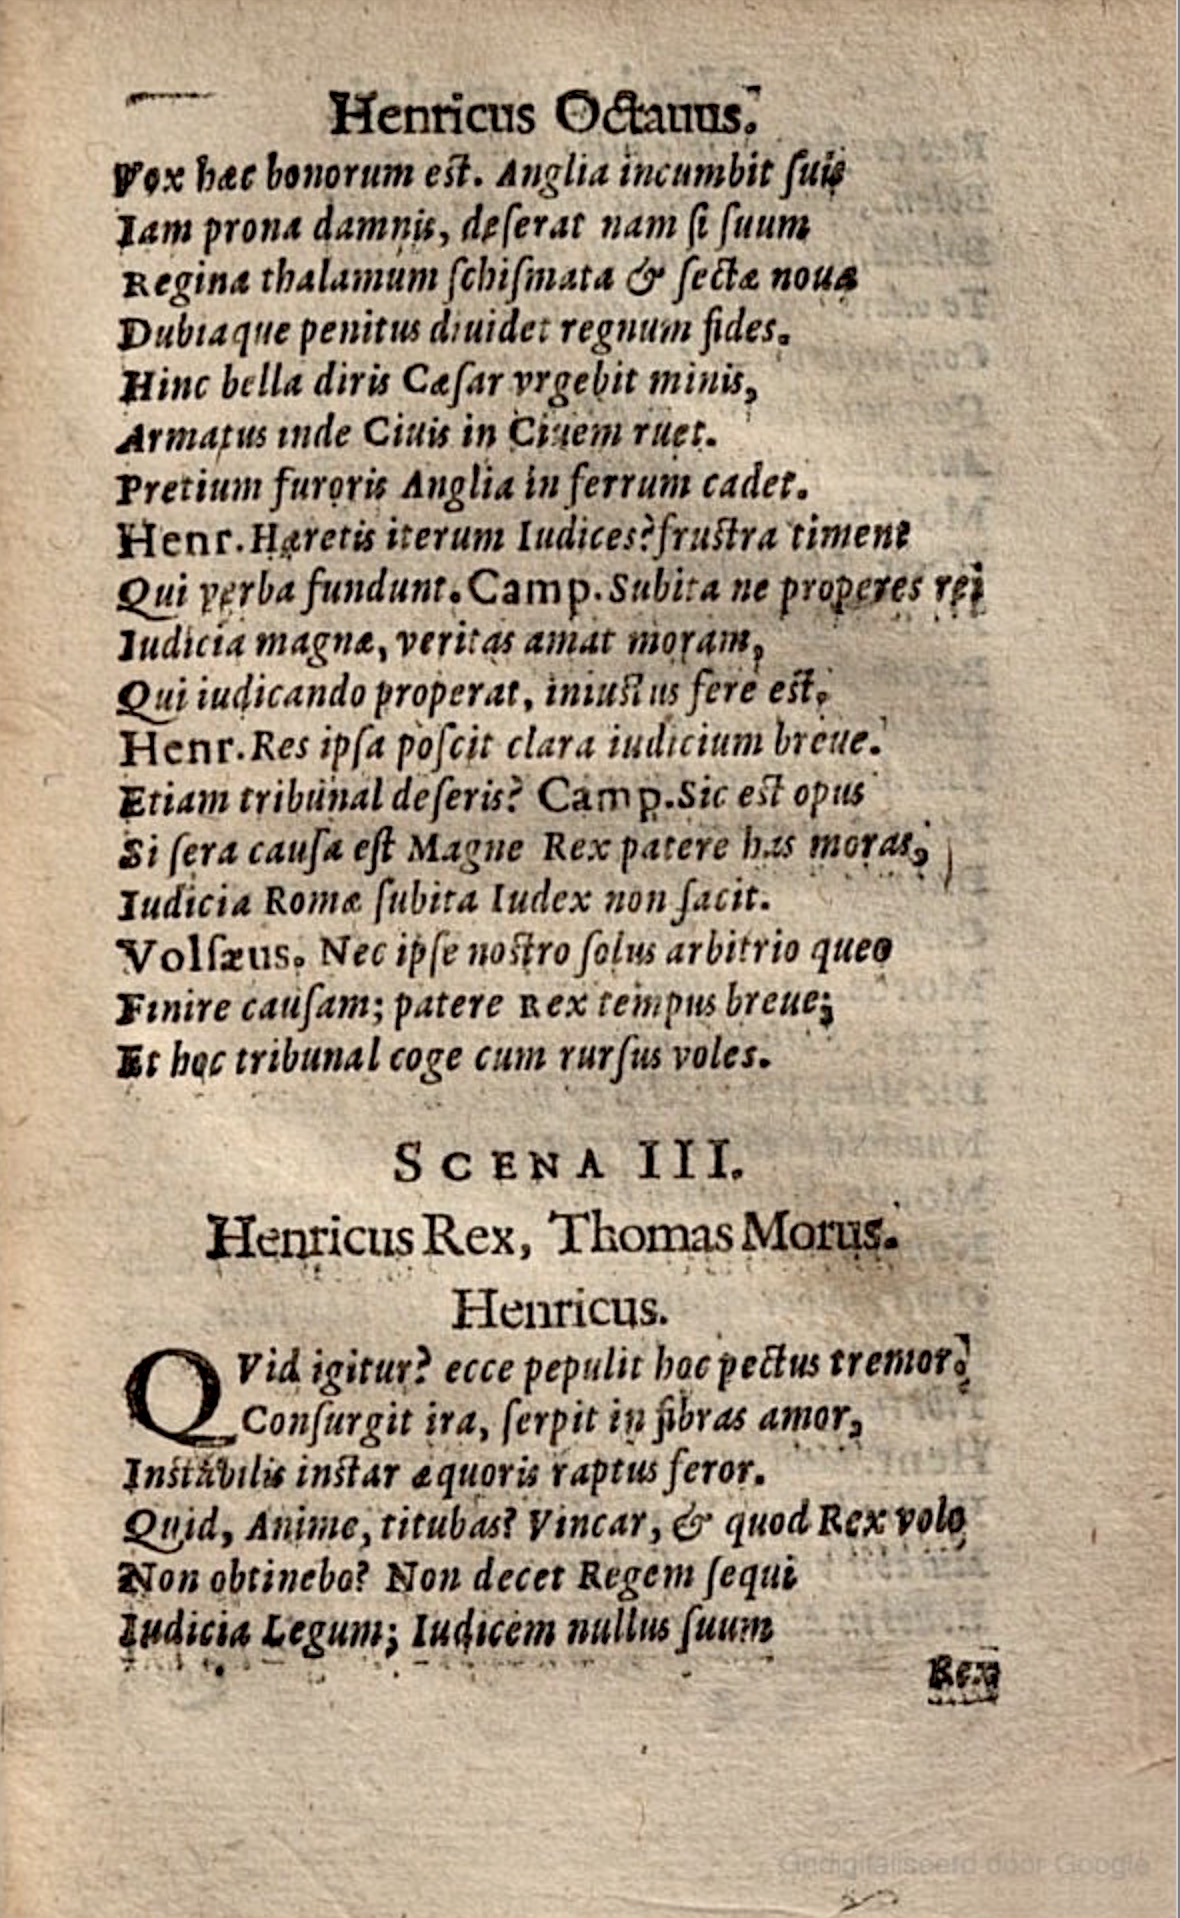 Henricus Octauus.
Vox hæc bonorum est. Anglia incumbit suis
Iam prona damnis, deserat nam si suum
Regina thalamum schismata & sectæ nouæ
Dubiaque penitus diuidet regnum fides.
Hinc bella diris Cæsar vrgebit minis,
Armatus inde Ciuis in Ciuem ruet.
Pretium furoris Anglia in ferrum cadet.
Henr. Hæretis iterum Iudices? frustra timent
Qui verba fundunt. Camp. Subita ne properes rei
Iudicia magnæ, veritas amat moram,
Qui iudicando properat, iniustus fere est.
Henr. Res ipsa poscit clara iudicium breue.
Etiam tribunal deseris? Camp. Sic est opus
Si sera causa est Magne Rex patere has moras,
Iudicia Romæ subita Iudex non facit.
Volsæus. Nec ipse nostro solus arbitrio queo
Finire causam; patere Rex tempus breue;
Et hoc tribunal coge cum rursus voles.
SCENA III.
Henricus Rex, Thomas Morus.
Henricus.
QVid igitur? ecce pepulit hoc pectus tremor.
Consurgit ira, serpit in fibras amor,
Instabilis instar æquoris raptus feror.
Quid, Anime, titubas? Vincar, & quod Rex volo
Non obtinebo? Non decet Regem sequi
Iudicia Legum; Iudicem nullus suum
Rex
Gedigitaliseerd door Google